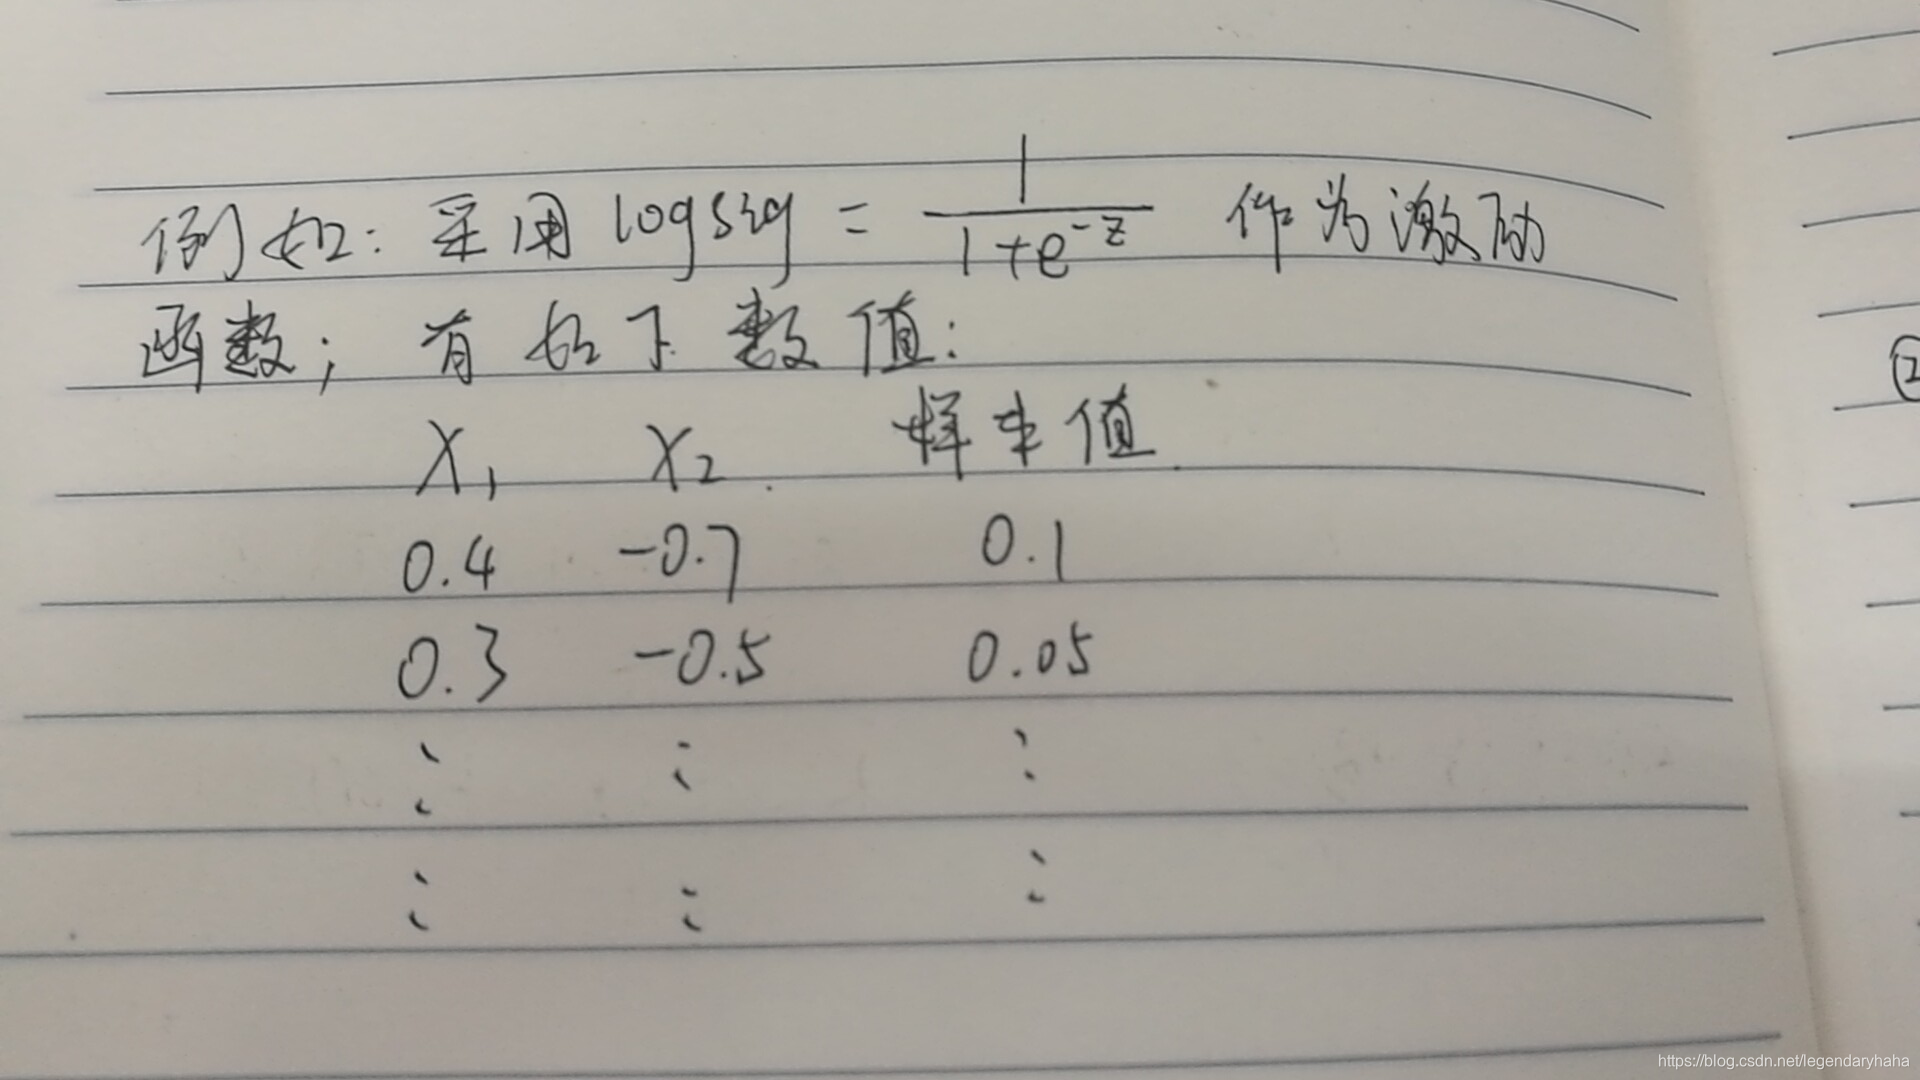 例如: 采用 logsig = \frac{1}{1+e^{-z}} 作为激励
函数; 有如下数值:
X₁ X₂ 样本值
0.4 -0.7 0.1
0.3 -0.5 0.05
⋮ ⋮ ⋮
⋮ ⋮ ⋮
②
https://blog.csdn.net/legendaryhaha